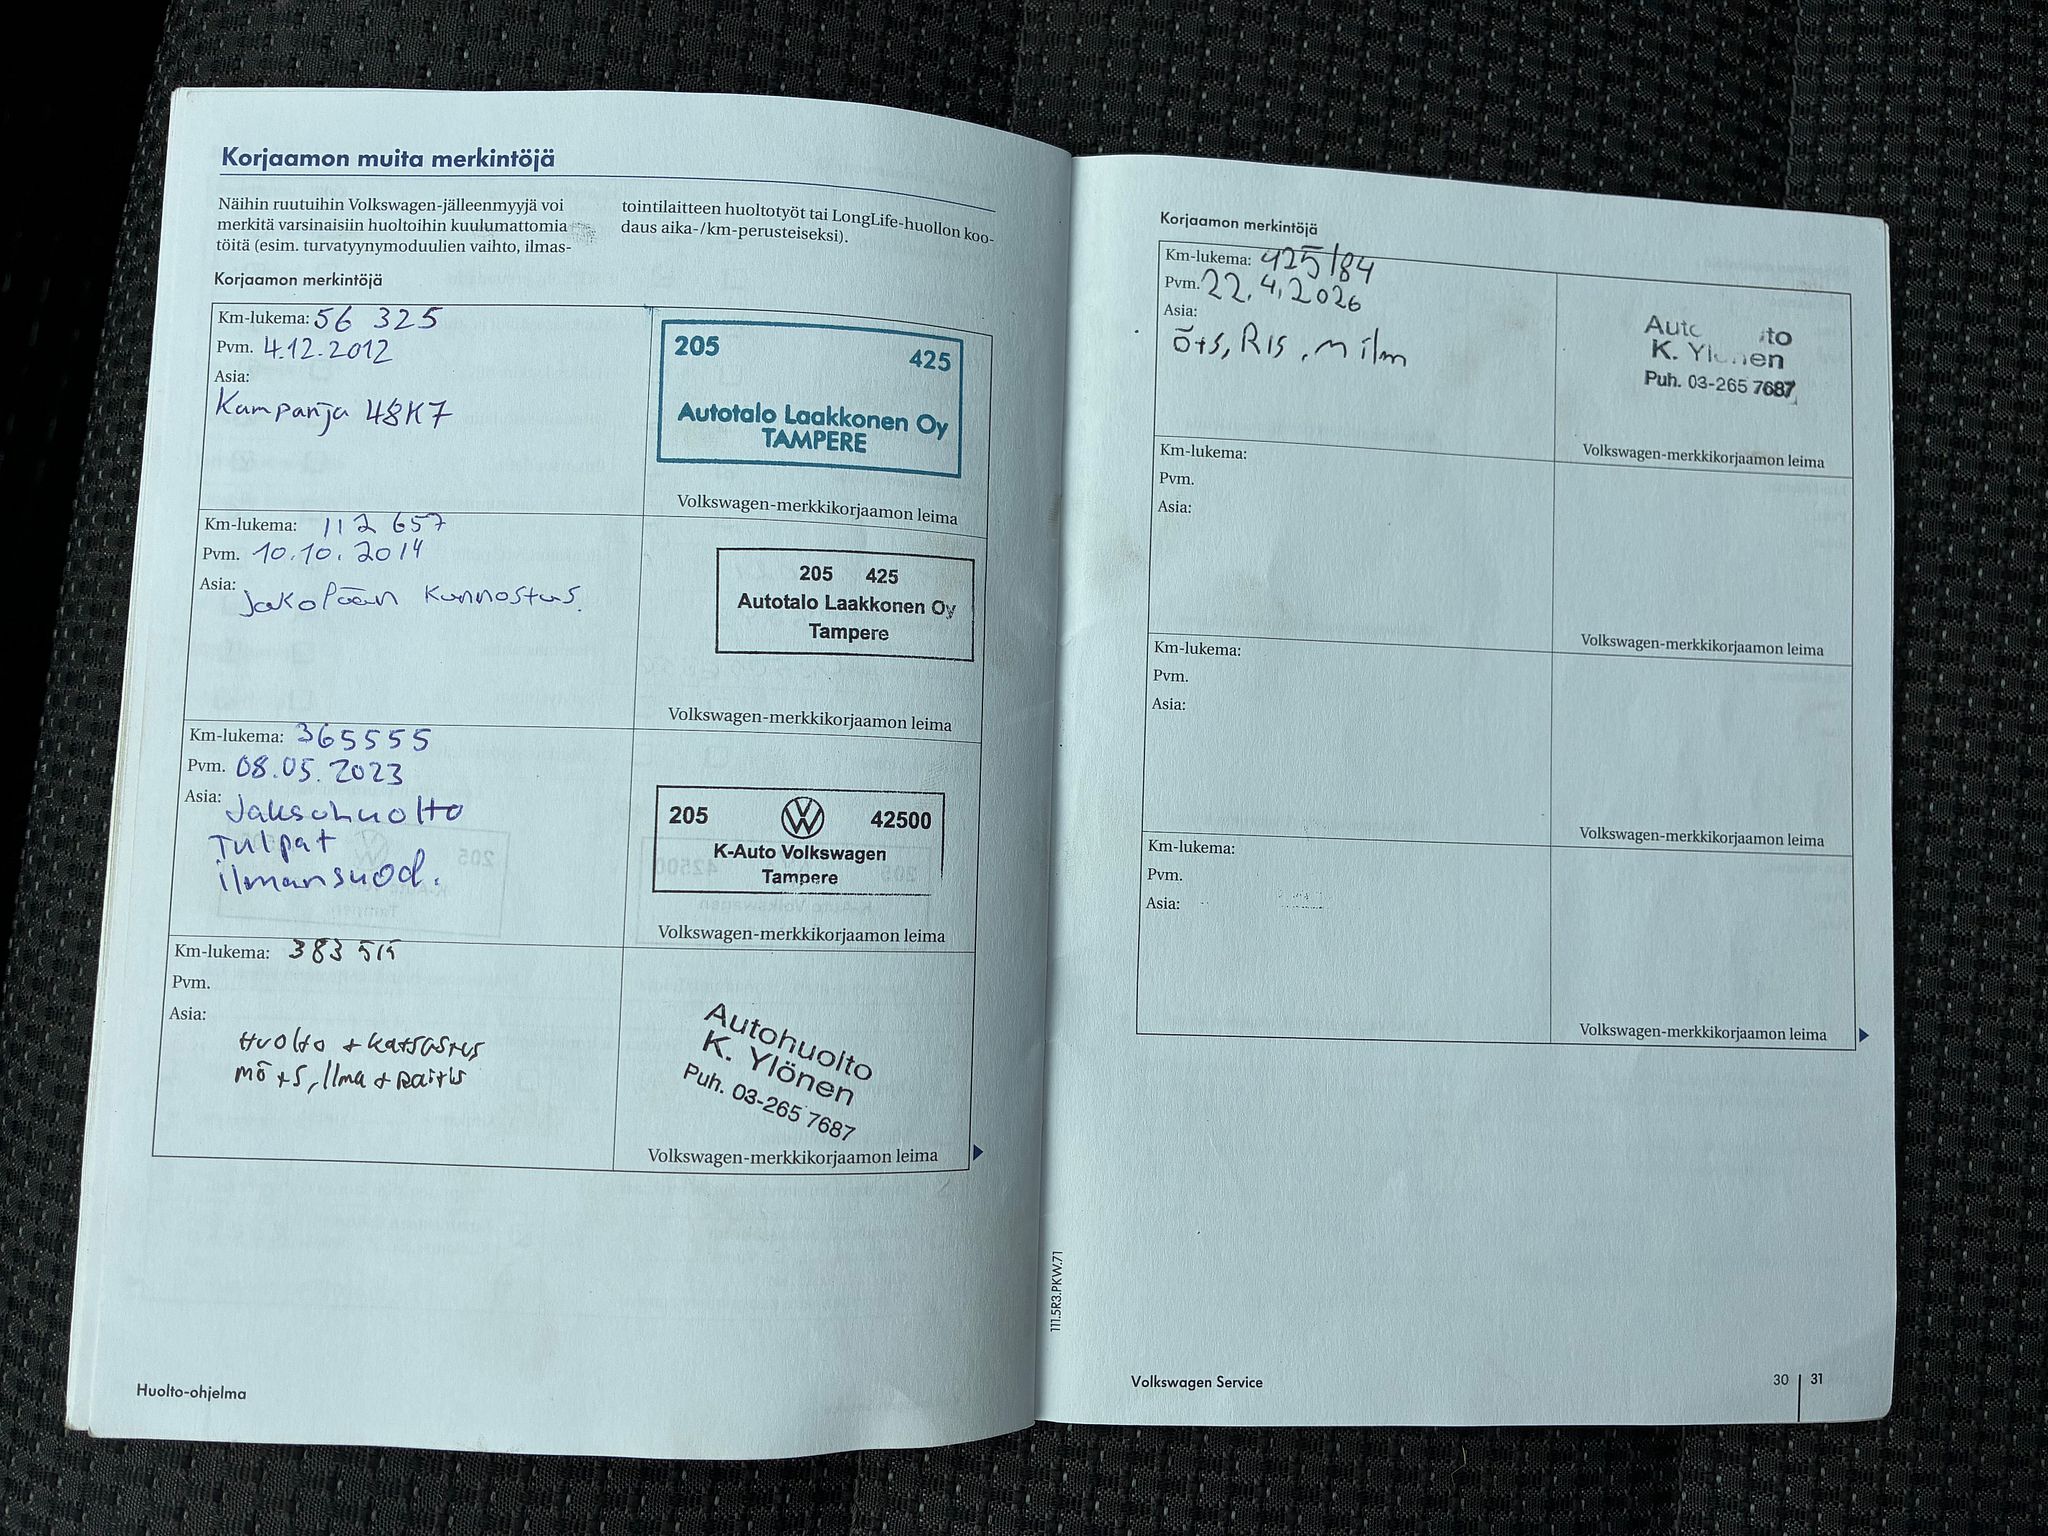 Korjaamon muita merkintöjä
Näihin ruutuihin Volkswagen-jälleenmyyjä voi
merkitä varsinaisiin huoltoihin kuulumattomia
töitä (esim. turvatyynymoduulien vaihto, ilmas-
tointilaitteen huoltotyöt tai LongLife-huollon koo-
daus aika-/km-perusteiseksi).
Korjaamon merkintöjä
Km-lukema: 56 325
Pvm. 4.12.2012
Asia:
Kampanja 48K7
205 425
Autotalo Laakkonen Oy
TAMPERE
Volkswagen-merkkikorjaamon leima
Km-lukema: 112 657
Pvm. 10.10.2014
Asia: Jakopään kunnostus.
205 425
Autotalo Laakkonen Oy
Tampere
Volkswagen-merkkikorjaamon leima
Km-lukema: 365555
Pvm. 08.05.2023
Asia: Jaksohuolto
Tulpat
ilmansuod.
205 42500
K-Auto Volkswagen
Tampere
Volkswagen-merkkikorjaamon leima
Km-lukema: 383 515
Pvm.
Asia:
Huolto + katsastus
mö+s, Ilma + Raitis
Autohuolto
K. Ylönen
Puh. 03-265 7687
Volkswagen-merkkikorjaamon leima
Huolto-ohjelma
Korjaamon merkintöjä
Km-lukema: 425184
Pvm. 22.4.2026
Asia:
ö+s, RIS, m ilm
Auto    to
K. Ylönen
Puh. 03-265 7687
Volkswagen-merkkikorjaamon leima
Km-lukema:
Pvm.
Asia:
Volkswagen-merkkikorjaamon leima
Km-lukema:
Pvm.
Asia:
Volkswagen-merkkikorjaamon leima
Km-lukema:
Pvm.
Asia:
Volkswagen-merkkikorjaamon leima
111.5R3.PKW.71
Volkswagen Service
30 31